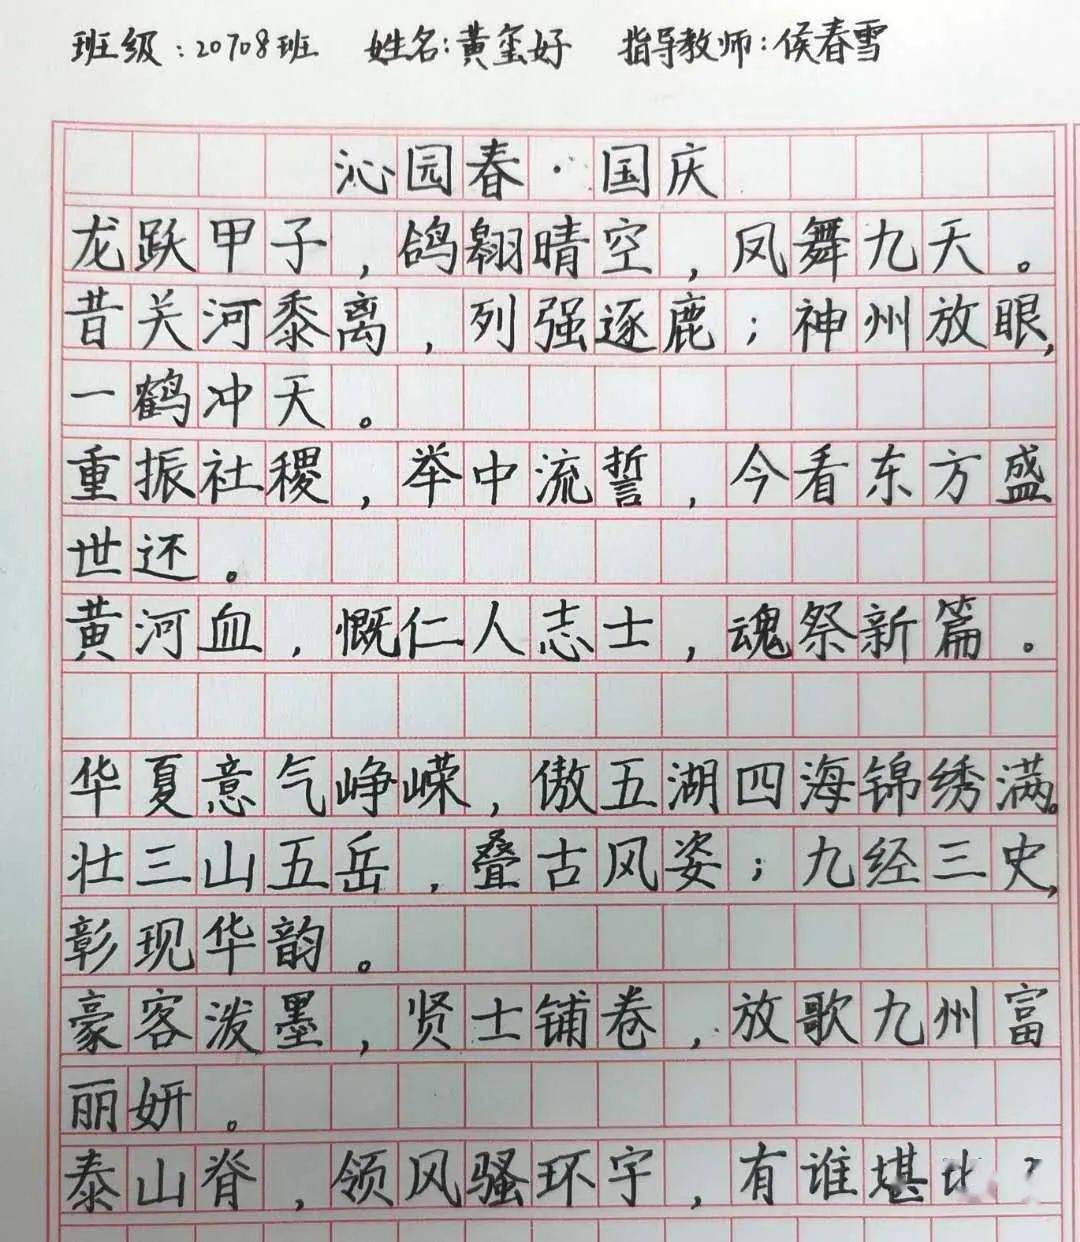 班级:20708班 姓名:黄玺好 指导教师:侯春雪
沁园春·国庆
龙跃甲子,鸽翱晴空,凤舞九天。
昔关河黍离,列强逐鹿;神州放眼,
一鹤冲天。
重振社稷,举中流誓,今看东方盛
世还。
黄河血,慨仁人志士,魂祭新篇。
华夏意气峥嵘,傲五湖四海锦绣满。
壮三山五岳,叠古风姿;九经三史,
彰现华韵。
豪客泼墨,贤士铺卷,放歌九州富
丽妍。
泰山脊,领风骚环宇,有谁堪比?